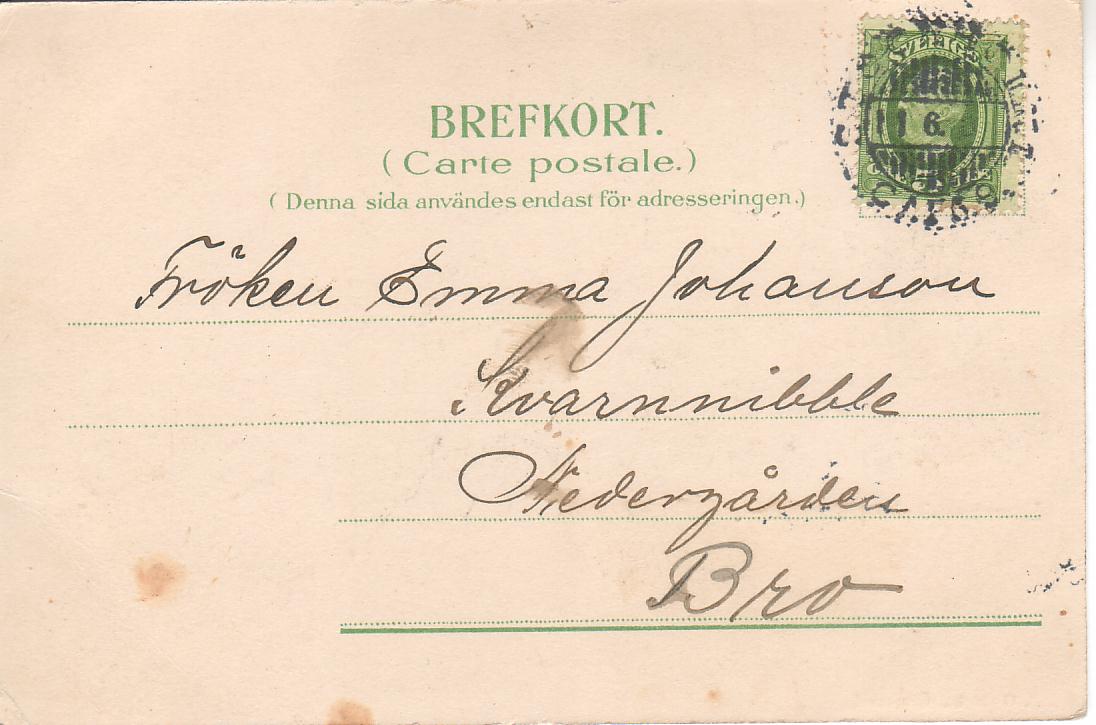 BREFKORT.
(Carte postale.)
(Denna sida användes endast för adresseringen.)
SVERIGE
11 6.
Fröken Emma Johanson
Kvarnnibble
Nedergården
Bro